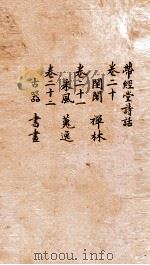 帶經堂詩話
卷二十
閨閣 禪林
卷二十一
衆風 蕘逸
卷二十二
古器 書畫
www.mtoou.info